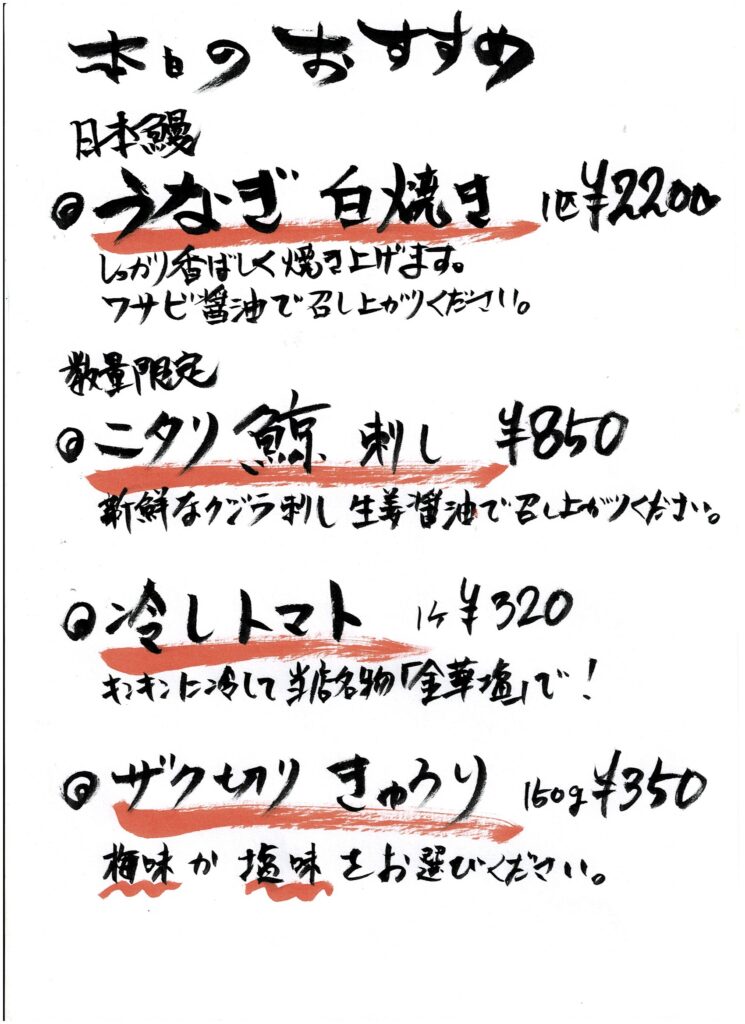 本日のおすすめ
日本鰻
◎うなぎ 白焼き 1匹 ¥2200
しっかり香ばしく焼き上げます。
ワサビ醤油で召し上がりください。
数量限定
◎ニタリ鯨 刺し ¥850
新鮮なクジラ刺し 生姜醤油で召し上がりください。
◎冷しトマト 1ケ ¥320
キンキンに冷して当店名物「金華塩」で!
◎ザク切りきゅうり 150g ¥350
梅味か塩味をお選びください。